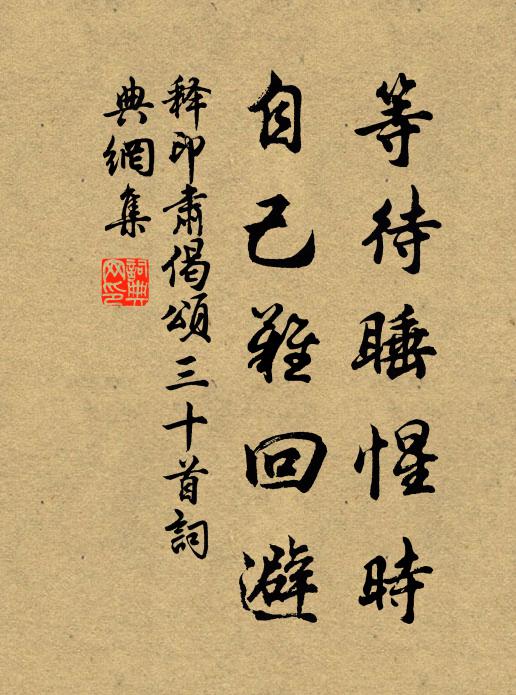 等待睡惺時
自己難回避
释印肃偈颂三十首詞
典網集
詞典網印